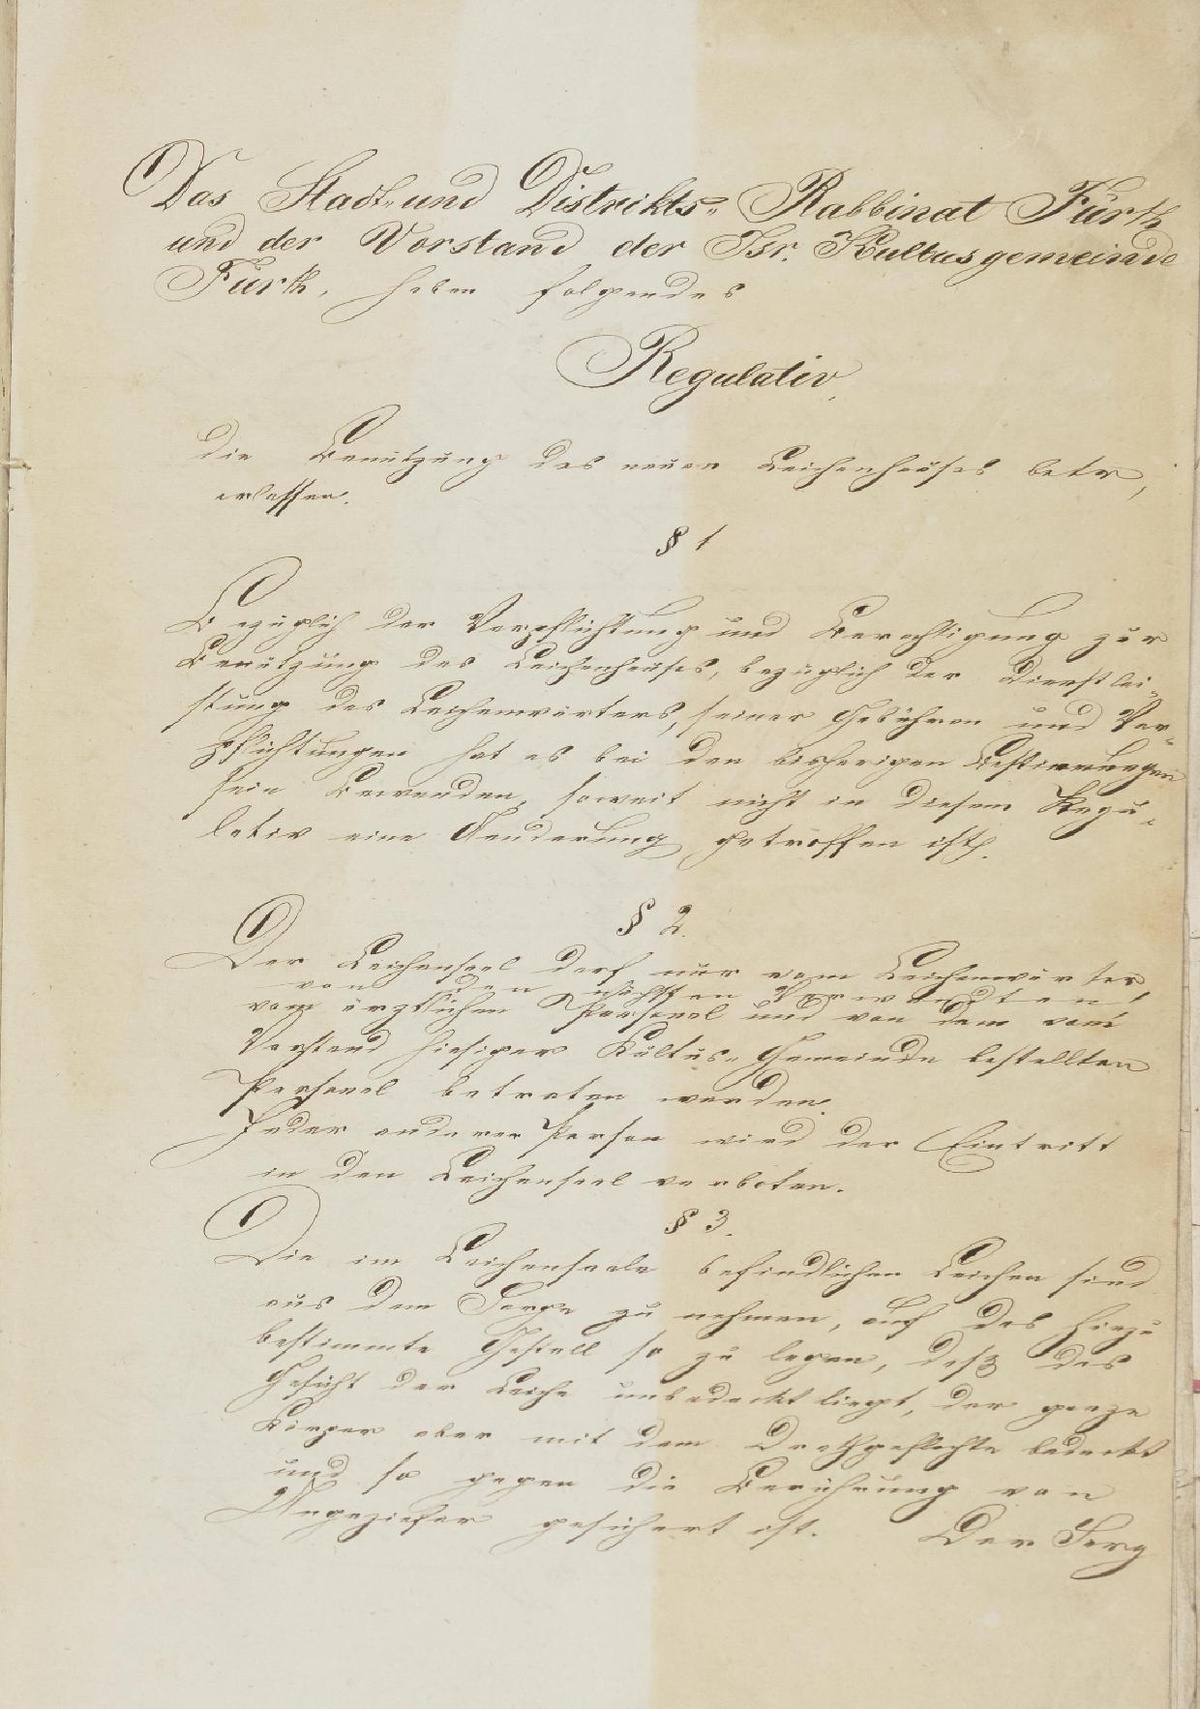 Das Stadt- und Distrikts- Rabbinat Fürth
und der Vorstand der Isr. Kultusgemeinde
Fürth, haben folgendes
Regulativ,
die Benützung des neuen Leichenhauses betr,
erlassen.
§ 1
Bezüglich der Verpflichtung und Berechtigung zur
Benützung des Leichenhauses, bezüglich der Dienstlei-
stung des Leichenwärters, seiner Gebühren und Ver-
pflichtungen hat es bei den bisherigen Bestimmungen
sein Bewenden, soweit nicht in diesem Regu-
lativ eine Aenderung getroffen ist.
§ 2.
Der Leichensaal darf nur vom Leichenwärter,
von den nächsten Verwandten,
vom ärztlichen Personal und von dem vom
Vorstand hiesiger Kultus- Gemeinde bestellten
Personal betreten werden.
Jeder anderen Person wird der Eintritt
in den Leichensaal verboten.
§ 3.
Die im Leichensaale befindlichen Leichen sind
aus dem Sarge zu nehmen, auf das hiezu
bestimmte Gestell so zu legen, daß das
Gesicht der Leiche unbedeckt liegt, der ganze
Körper aber mit dem Drathgeflechte bedeckt
und so gegen die Berührung von
Ungeziefer gesichert ist. Der Sarg